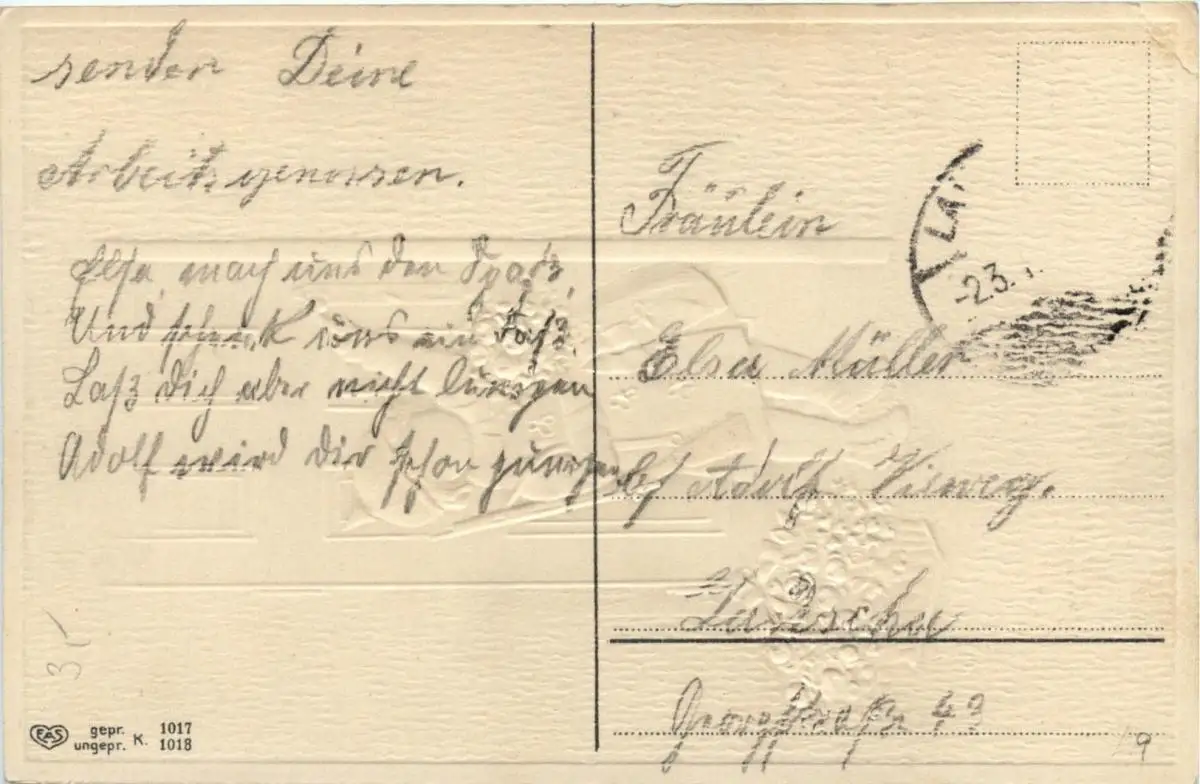 senden Deine
Arbeitsgenossen.
Elsa, mach uns den Spaß,
Und schenk uns ein Faß.
Laß dich aber nicht lumpen
Adolf wird dir schon
Fräulein
Elsa Müller
b/ Adolf Vieweg.
43
LA
-23.
35
EAS
gepr. 1017
ungepr. K. 1018
19